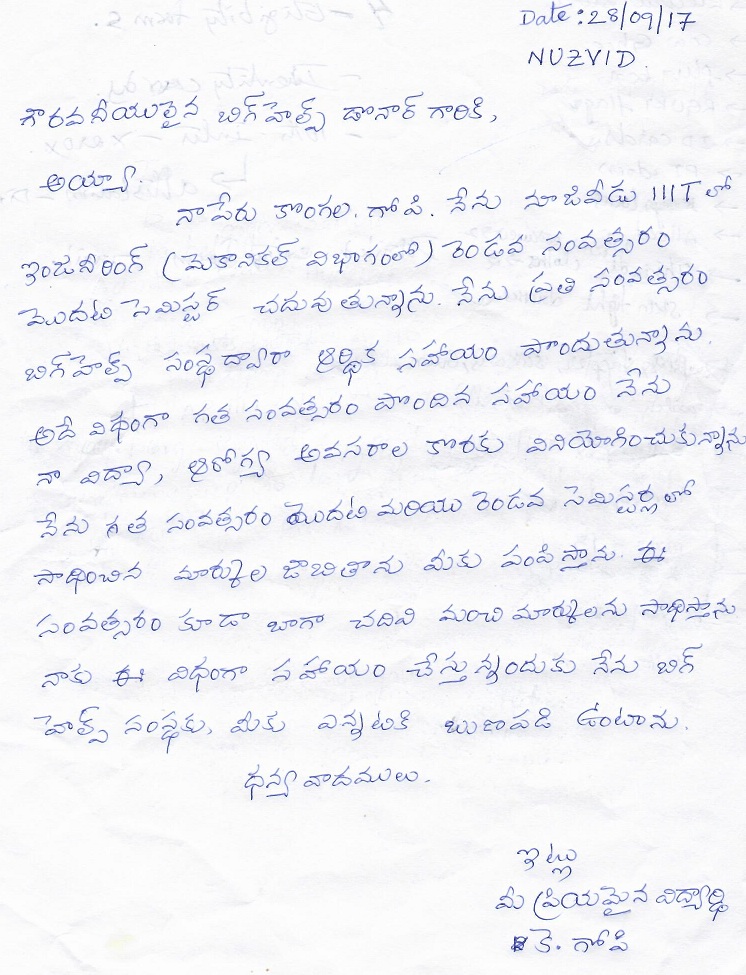 Date: 28/09/17
NUZVID.
గౌరవనీయులైన బిగ్‌హెల్ప్ డొనార్ గారికి,
అయ్యా
నా పేరు కొంగల. గోపి. నేను నూజివీడు IIIT లో
ఇంజనీరింగ్ (మెకానికల్ విభాగంలో) రెండవ సంవత్సరం
మొదటి సెమిస్టర్ చదువుతున్నాను. నేను ప్రతి సంవత్సరం
బిగ్‌హెల్ప్ సంస్థ ద్వారా ఆర్థిక సహాయం పొందుతున్నాను.
అదే విధంగా గత సంవత్సరం పొందిన సహాయం నేను
నా విద్యా, ఆరోగ్య అవసరాల కొరకు వినియోగించుకున్నాను
నేను గత సంవత్సరం మొదటి మరియు రెండవ సెమిస్టర్ల లో
సాధించిన మార్కుల జాబితాను మీకు పంపిస్తాను. ఈ
సంవత్సరం కూడా బాగా చదివి మంచి మార్కులను సాధిస్తాను
నాకు ఈ విధంగా సహాయం చేస్తున్నందుకు నేను బిగ్
హెల్ప్ సంస్థకు, మీకు ఎన్నటికి ఋణపడి ఉంటాను.
ధన్యవాదములు.
ఇట్లు
మీ ప్రియమైన విద్యార్థి
కె. గోపి